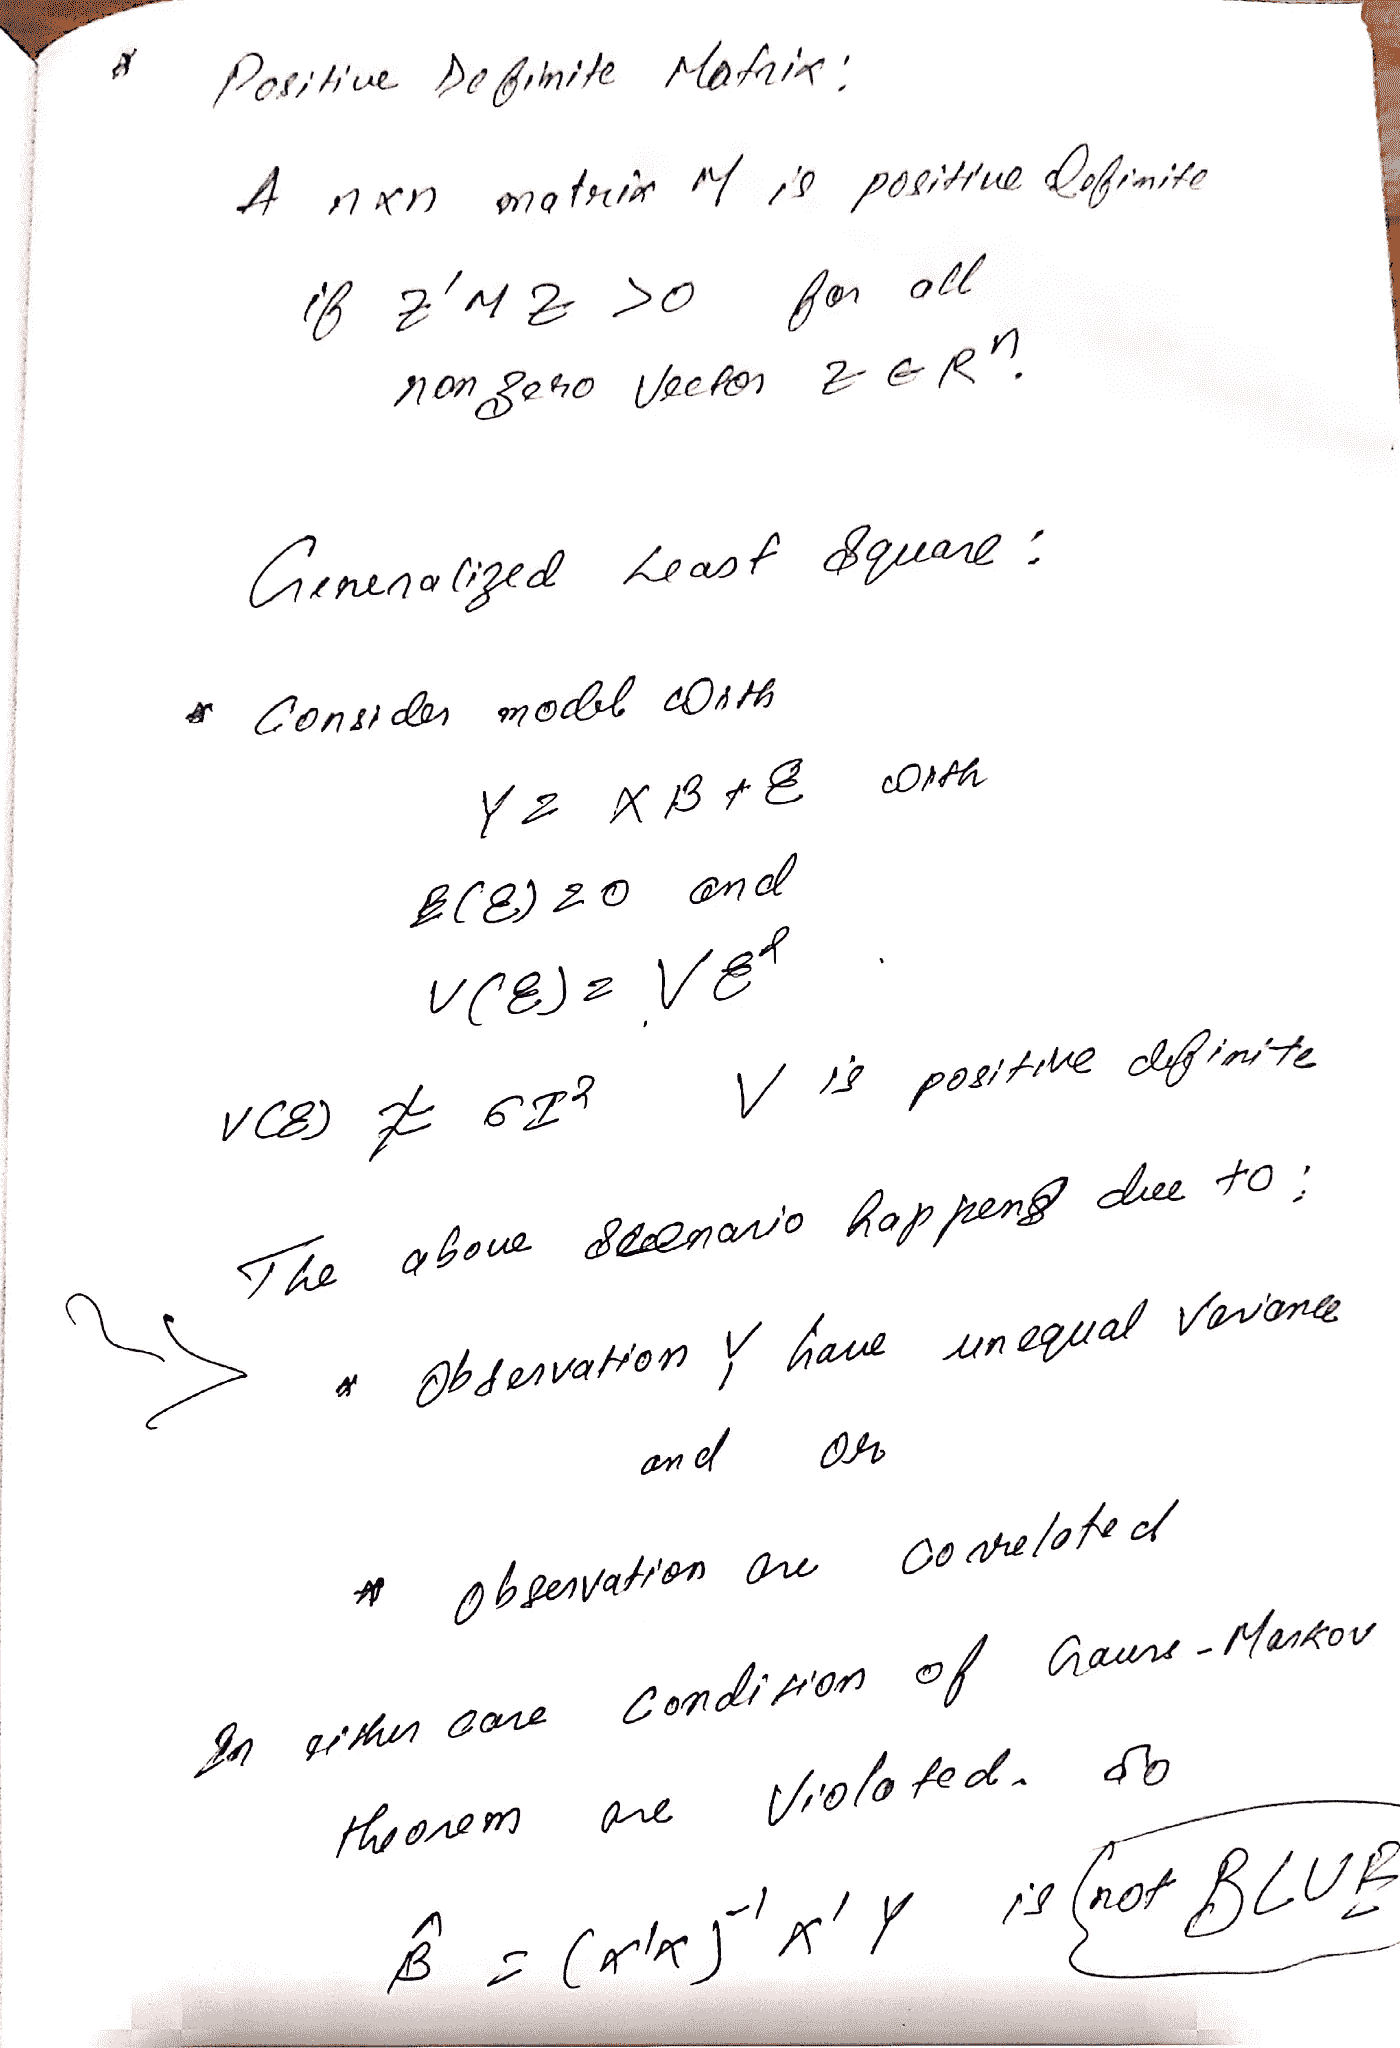 * Positive Definite Matrix:
A n×n matrix M is positive Definite
if Z'MZ >0 for all
non zero Vector Z ∈ Rⁿ.
Generalized Least Square:
* Consider model with
Y = Xβ + ε with
E(ε) = 0 and
V(ε) = Vε²
V(ε) ≠ σI² V is positive definite
The above scenario happens due to:
* Observation Y have unequal Variance
and or
* Observation are correlated
In either case Condition of Gauss-Markov
theorem are Violated. So
β̂ = (x'x)⁻¹ x' Y is not BLUE